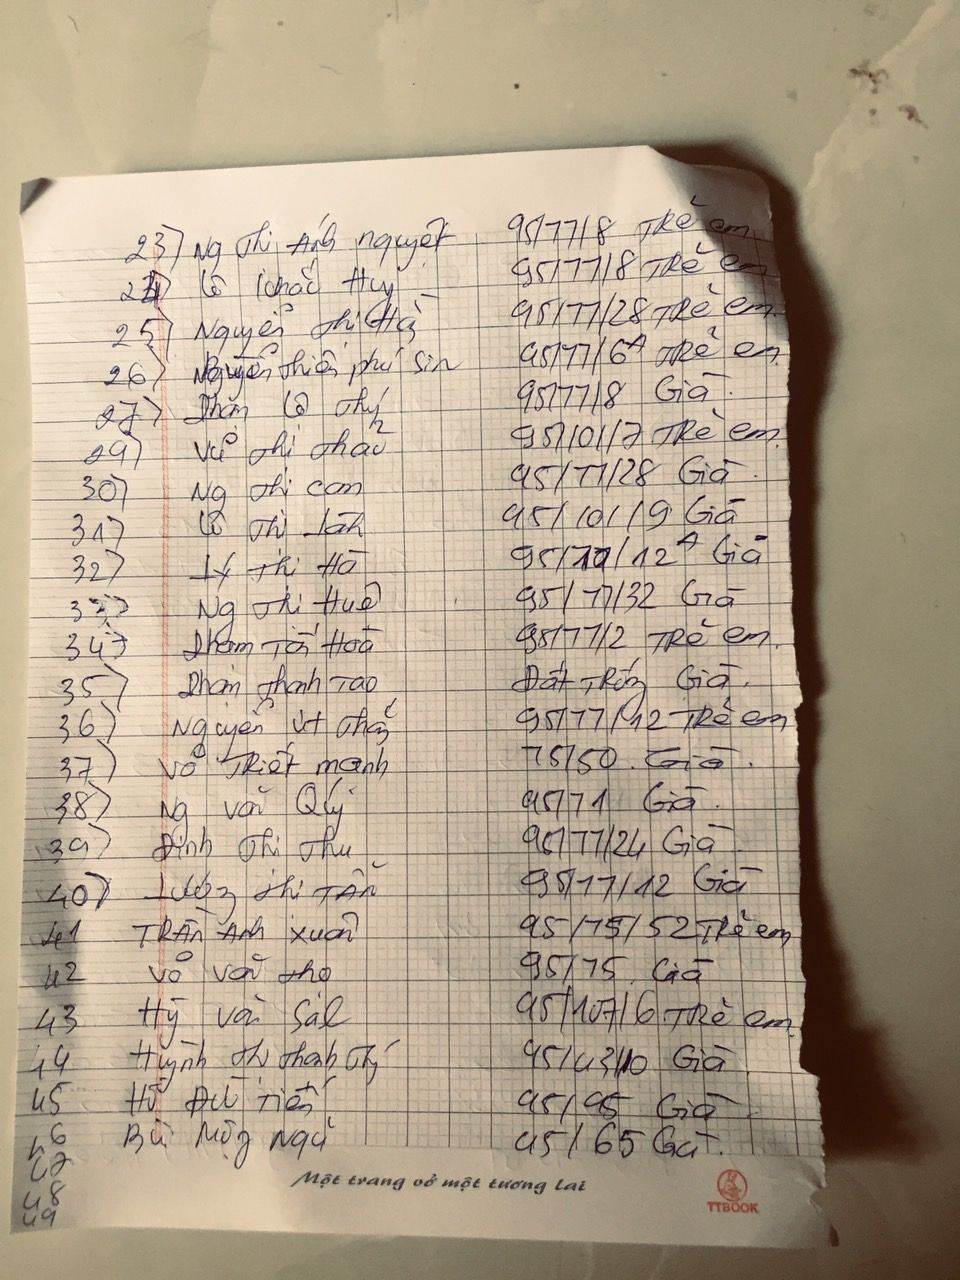 23) Ng Thị Ánh nguyệt 95/77/8 Trẻ em
24) Lê Khắc Huy 95/77/8 Trẻ em
25) Nguyễn Thị Hà 95/77/28 Trẻ em
26) Nguyễn thiên phú Sin 95/77/6A Trẻ em
27) Phan Lê Thy 95/77/8 Già
29) Vũ thị thảo 95/101/7 Trẻ em
30) Ng thị cam 95/77/28 Già
31) Lê Thị Lành 95/101/9 Già
32) Lý Thị Hà 95/ /12A Già
33) Ng Thị Huê 95/77/32 Già
34) Phạm Tấn Hoà 95/77/2 Trẻ em
35) Phạm thanh Tao Đất Trống Già
36) Nguyễn út Thắng 95/77/12 Trẻ em
37) Võ Triết mạnh 75/50 Già
38) Ng văn Quý 95/71 Già
39) Đinh Thị Thu 95/77/24 Già
40) Lương Thị Tần 95/77/12 Già
41 Trần Anh Xuân 95/75/52 Trẻ em
42 Võ văn thọ 95/75 Già
43 Hỷ văn 95/107/6 Trẻ em
44 Huỳnh Thị Thanh Thý 95/43/10 Già
45 Hồ Đức Tiến 95/95 Già
46 Bùi Mộng Ngà 95/65 Gà
47
48
49
Một trang vở một tương lai
TTBOOK